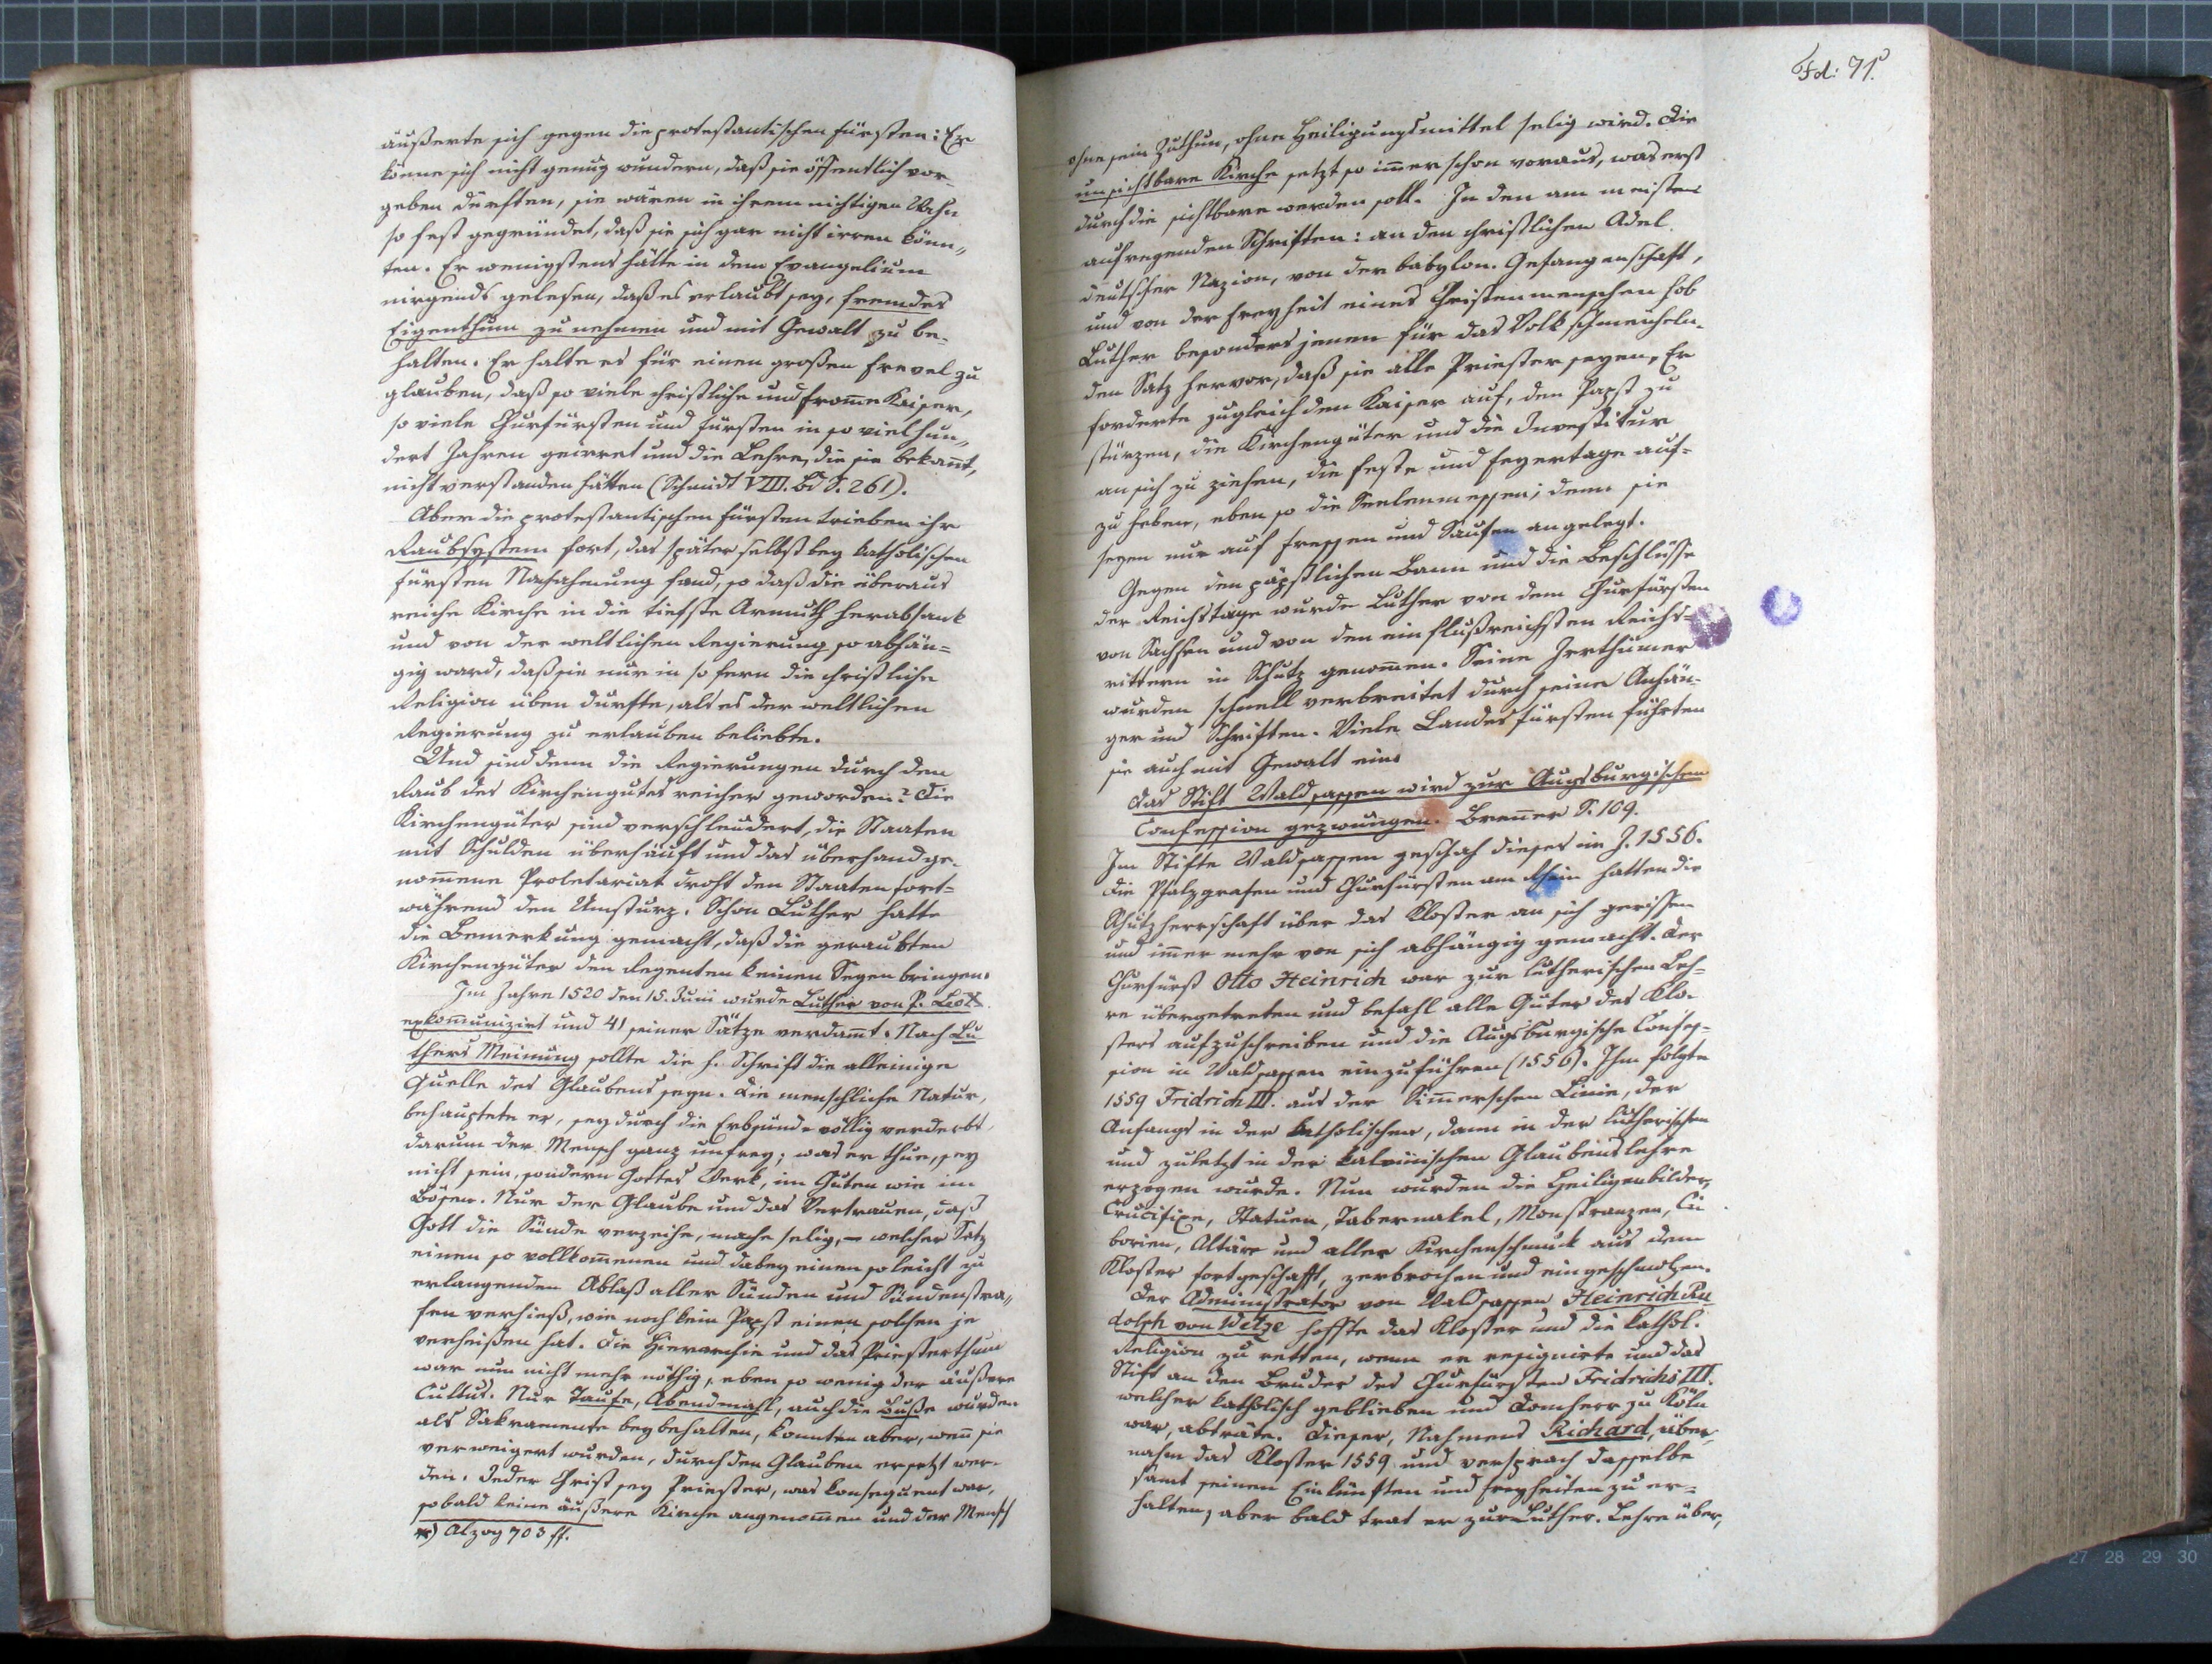 äußerte sich gegen die protestantischen Fürsten: Er
könne sich nicht genug wundern, daß sie öffentlich vor-
geben dürften, sie wären in ihrem nichtigen Wahn
so fest gegründet, daß sie sich gar nicht irren könn„
ten. Er wenigstens hätte in dem Evangelium
nirgends gelesen, daß es erlaubt sey, fremdes
Eigenthum zu nehmen und mit Gewalt zu be-
halten. Er halte es für einen großen Frevel zu
glauben, daß so viele christliche und from̅e Kaiser,
so viele Churfürsten und Fürsten in so viel hun„
dert Jahren geirret und die Lehre, die sie bekan̅t,
nicht verstanden hätten (Schmidt VIII. Bd S. 261).
Aber die protestantischen Fürsten trieben ihr
Raubsystem fort, das später selbst bey katholischen
Fürsten Nachahmung fand, so daß die überaus
reiche Kirche in die tiefste Armuth herabsank
und von der weltlichen Regierung so abhän=
gig ward, daß sie nur in so fern die christliche
Religion üben durfte, als es der weltlichen
Regierung zu erlauben beliebte.
Und sind denn die Regierungen durch den
Raub des Kirchengutes reicher geworden? Die
Kirchengüter sind verschleudert, die Staaten
mit Schulden überhäuft und das überhandge-
nom̅ene Proletariat droht den Staaten fort=
während den Umsturz. Schon Luther hatte
die Bemerkung gemacht, daß die geraubten
Kirchengüter den Regenten keinen Segen bringen.
Im Jahre 1520 den 15. Juni wurde Luther von P. Leo X
exkom̅unizirt und 41 seiner Sätze verdam̅t. Nach Lu
thers Meinung sollte die h. Schrift die alleinige
Quelle des Glaubens seyn. Die menschliche Natur,
behauptete er, sey durch die Erbsünde völlig verderbt,
darum der Mensch ganz unfrey; was er thue, sey
nicht sein, sondern Gottes Werk, im Guten wie im
Bösen. Nur der Glaube und das Vertrauen, daß
Gott die Sünde verzeihe, mache selig, – welcher Satz
einen so vollkom̅enen und dabey einen so leicht zu
erlangenden Ablaß aller Sünden und Sündenstra„
fen verhieß, wie noch kein Papst einen solchen je
verheißen hat. Die Hierarchie und das Priesterthum
war nun nicht mehr nöthig, eben so wenig der äußere
Cultus. Nur Taufe, Abendmahl, auch die Buße wurden
als Sakramente beybehalten, konnten aber, wen̅ sie
verweigert wurden, durch den Glauben ersetzt wer-
den. Jeder Christ sey Priester, was konsequent war,
sobald keine äußere Kirche angenom̅en und der Mensch
*) Alzog 703 ff.
Fol: 71.
ohne sein Zuthun, ohne Heiligungsmittel selig wird. Die
unsichtbare Kirche setzt so im̅er schon voraus, was erst
durch die sichtbare werden soll. In den am meisten
aufregenden Schriften: an den christlichen Adel
deutscher Nazion, von der babylon. Gefangenschaft,
und von der Freyheit eines Christenmenschen hob
Luther besonders jenen für das Volk schmeicheln-
den Satz hervor, daß sie alle Priester seyen. Er
forderte zugleich den Kaiser auf, den Papst zu
stürzen, die Kirchengüter und die Investitur
an sich zu ziehen, die Feste und Feyertage auf=
zu heben, eben so die Seelenmessen; denn sie
seyen nur auf Fressen und Saufen angelegt.
Gegen den päpstlichen Bann und die Beschlüsse
der Reichstage wurde Luther von dem Churfürsten
von Sachsen und von den einflußreichsten Reichs=
rittern in Schutz genom̅en. Seine Irrthümer
wurden schnell verbreitet durch seine Anhän-
ger und Schriften. Viele Landesfürsten führten
sie auch mit Gewalt ein.
Das Stift Waldsassen wird zur Augsburgischen
Confession gezwungen. Bren̅er S. 109.
Im Stifte Waldsassen geschah dieses im J. 1556.
Die Pfalzgrafen und Churfürsten am Rhein hatten die
Schutzherrschaft über das Kloster an sich gerissen
und im̅er mehr von sich abhängig gemacht. Der
Churfürst Otto Heinrich war zur lutherischen Leh=
re übergetreten und befahl alle Güter des Klo-
sters aufzuschreiben und die Augsburgische Confes=
sion in Waldsassen einzuführen (1556). Ihm folgte
1559 Fridrich III. aus der Sim̅erschen Linie, der
Anfangs in der katholischen, dann in der lutherischen
und zuletzt in der kalvinischen Glaubenslehre
erzogen wurde. Nun wurden die Heiligenbilder,
Crucifixe, Statuen, Tabernakel, Monstranzen, Ci
borien, Altäre und aller Kirchenschmuck aus dem
Kloster fortgeschafft, zerbrochen und eingeschmolzen.
Der Administrator von Waldsassen Heinrich Ru
dolph von Weze hoffte das Kloster und die kathol.
Religion zu retten, wenn er resignirte und das
Stift an den Bruder des Churfürsten Fridrichs III.
welcher katholisch geblieben und Domherr zu Köln
war, abträte. Dieser, Nahmens Richard, über-
nahm das Kloster 1559 und versprach dasselbe
samt seinen Einkünften und Freyheiten zu er=
halten; aber bald trat er zur Luther. Lehre über,